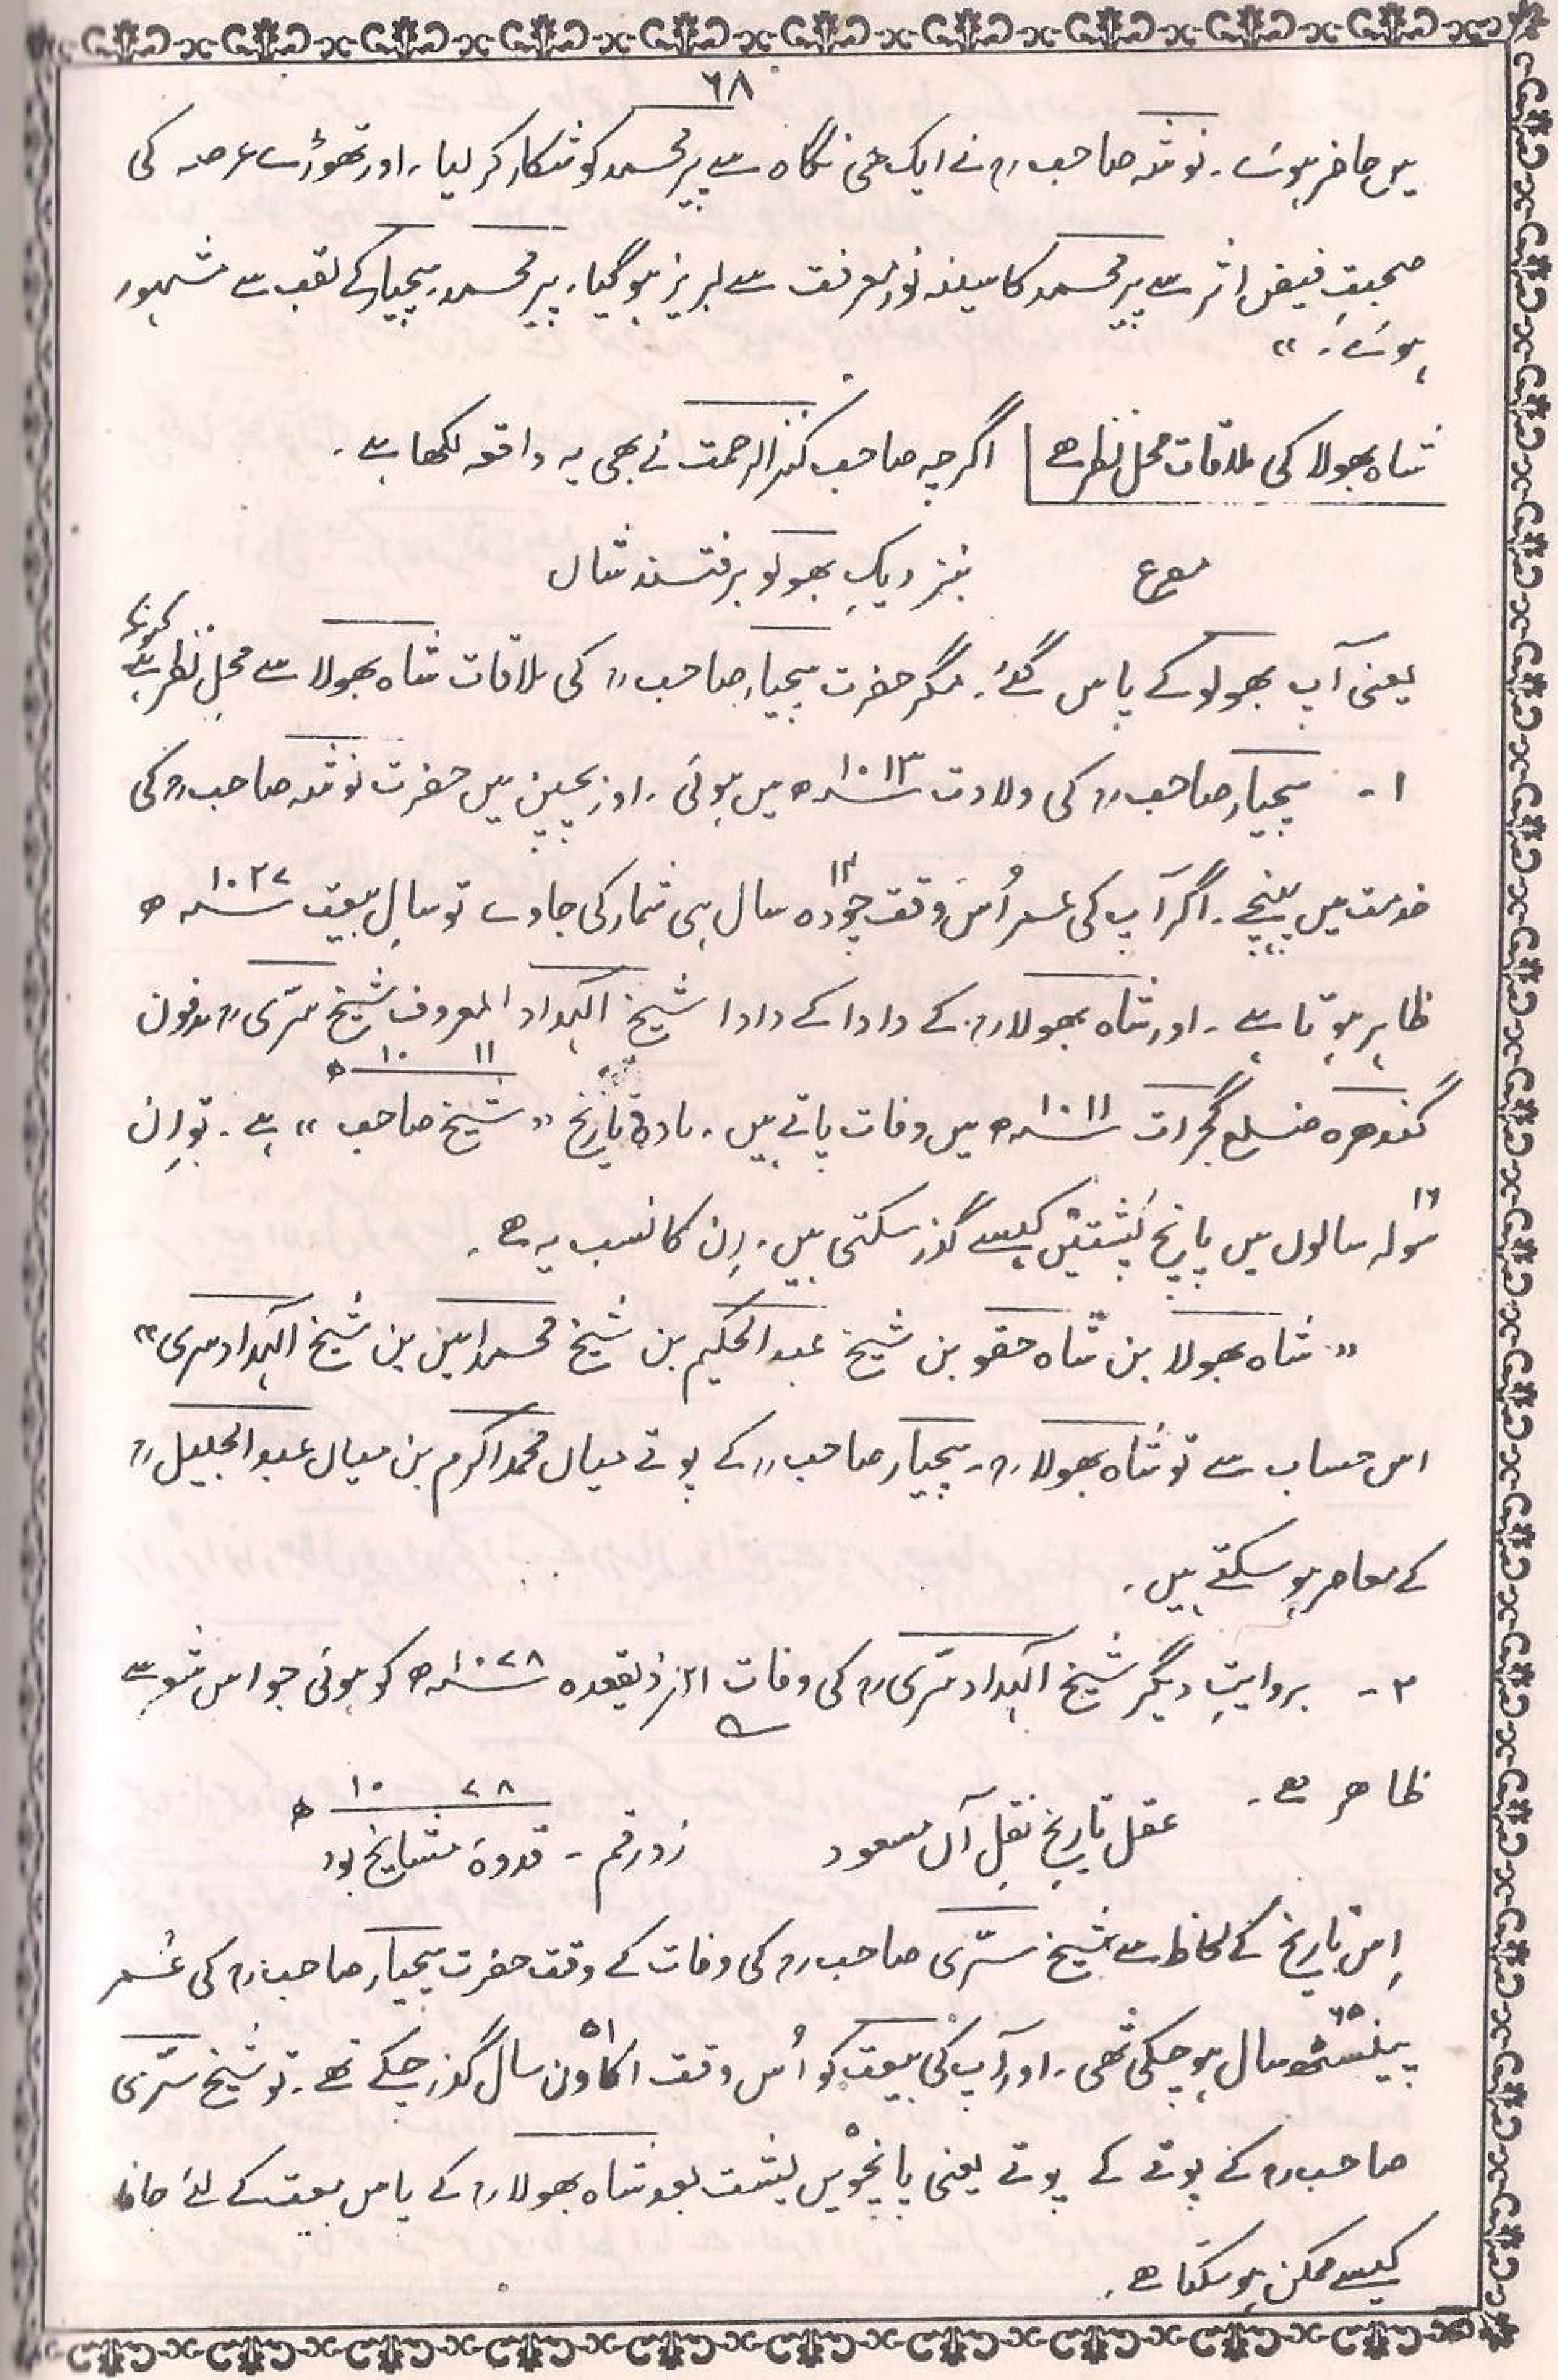 ۶۸
میں حاضر ہوئے۔ نوشہ صاحبؒ نے ایک ھی نگاہ سے پیر محمد کو شکار کر لیا۔ اور تھوڑے عرصہ کی
صحبتِ فیض اثر سے پیر محمد کا سینہ نورِ معرفت سے لبریز ہو گیا۔ پیر محمد سچیار کے لقب سے مشہور
ہوئے۔"
شاہ بھولا کی ملاقات محل نظر ھے اگرچہ صاحب کنز الرحمت نے بھی یہ واقعہ لکھا ہے۔
مصرع بنزدیکِ بھولو برفتند شاں
یعنی آپ بھولو کے پاس گئے۔ مگر حضرت سچیار صاحبؒ کی ملاقات شاہ بھولا سے محلِ نظر ہے کیونکہ
۱۔ سچیار صاحبؒ کی ولادت ۱۰۱۳ھ میں ہوئی۔ اور بچپن میں حضرت نوشہ صاحبؒ کی
خدمت میں پہنچے۔ اگر آپ کی عمر اُس وقت چودہ ۱۴ سال ہی شمار کی جاوے تو سالِ بیعت ۱۰۲۷ھ
ظاہر ہوتا ہے۔ اور شاہ بھولاؒ کے دادا کے دادا شیخ الہداد المعروف شیخ سرّیؒ مدفون
گندھرہ ضلع گجرات ۱۰۱۱ھ میں وفات پاتے ہیں۔ مادہ تاریخ "شیخ صاحب" ۱۰۱۱ھ ہے۔ تو اِن
سولہ ۱۶ سالوں میں پانچ پُشتیں کیسے گذر سکتی ہیں۔ اِن کا نسب یہ ھے۔
"شاہ بھولا بن شاہ حقو بن شیخ عبدالحکیم بن شیخ محمد امین بن شیخ الہداد سری"
اس حساب سے تو شاہ بھولاؒ۔ سچیار صاحبؒ کے پوتے میاں محمد اکرم بن میاں عبدالجلیلؒ
کے معاصر ہو سکتے ہیں۔
۲۔ بروایتِ دیگر شیخ الہداد سرّیؒ کی وفات ۲۱ ذیقعدہ ۱۰۷۸ھ کو ہوئی جو اس شعر سے
ظاھر ھے۔ ۱۰۷۸ھ
عقل تاریخِ نقلِ آں مسعود زد رقم - قدوۂ مشایخ بود
اِس تاریخ کے لحاظ سے شیخ سرّی صاحبؒ کی وفات کے وقت حضرت سچیار صاحبؒ کی عُمر
پینسٹھ ۶۵ سال ہو چکی تھی۔ اور آپ کی بیعت کو اُس وقت اکاون ۵۱ سال گذر چکے تھے۔ تو شیخ سرّی
صاحبؒ کے پوتے کے پوتے یعنی پانچویں پشت بعد شاہ بھولاؒ کے پاس بیعت کے لئے جانا
کیسے ممکن ہو سکتا ھے۔